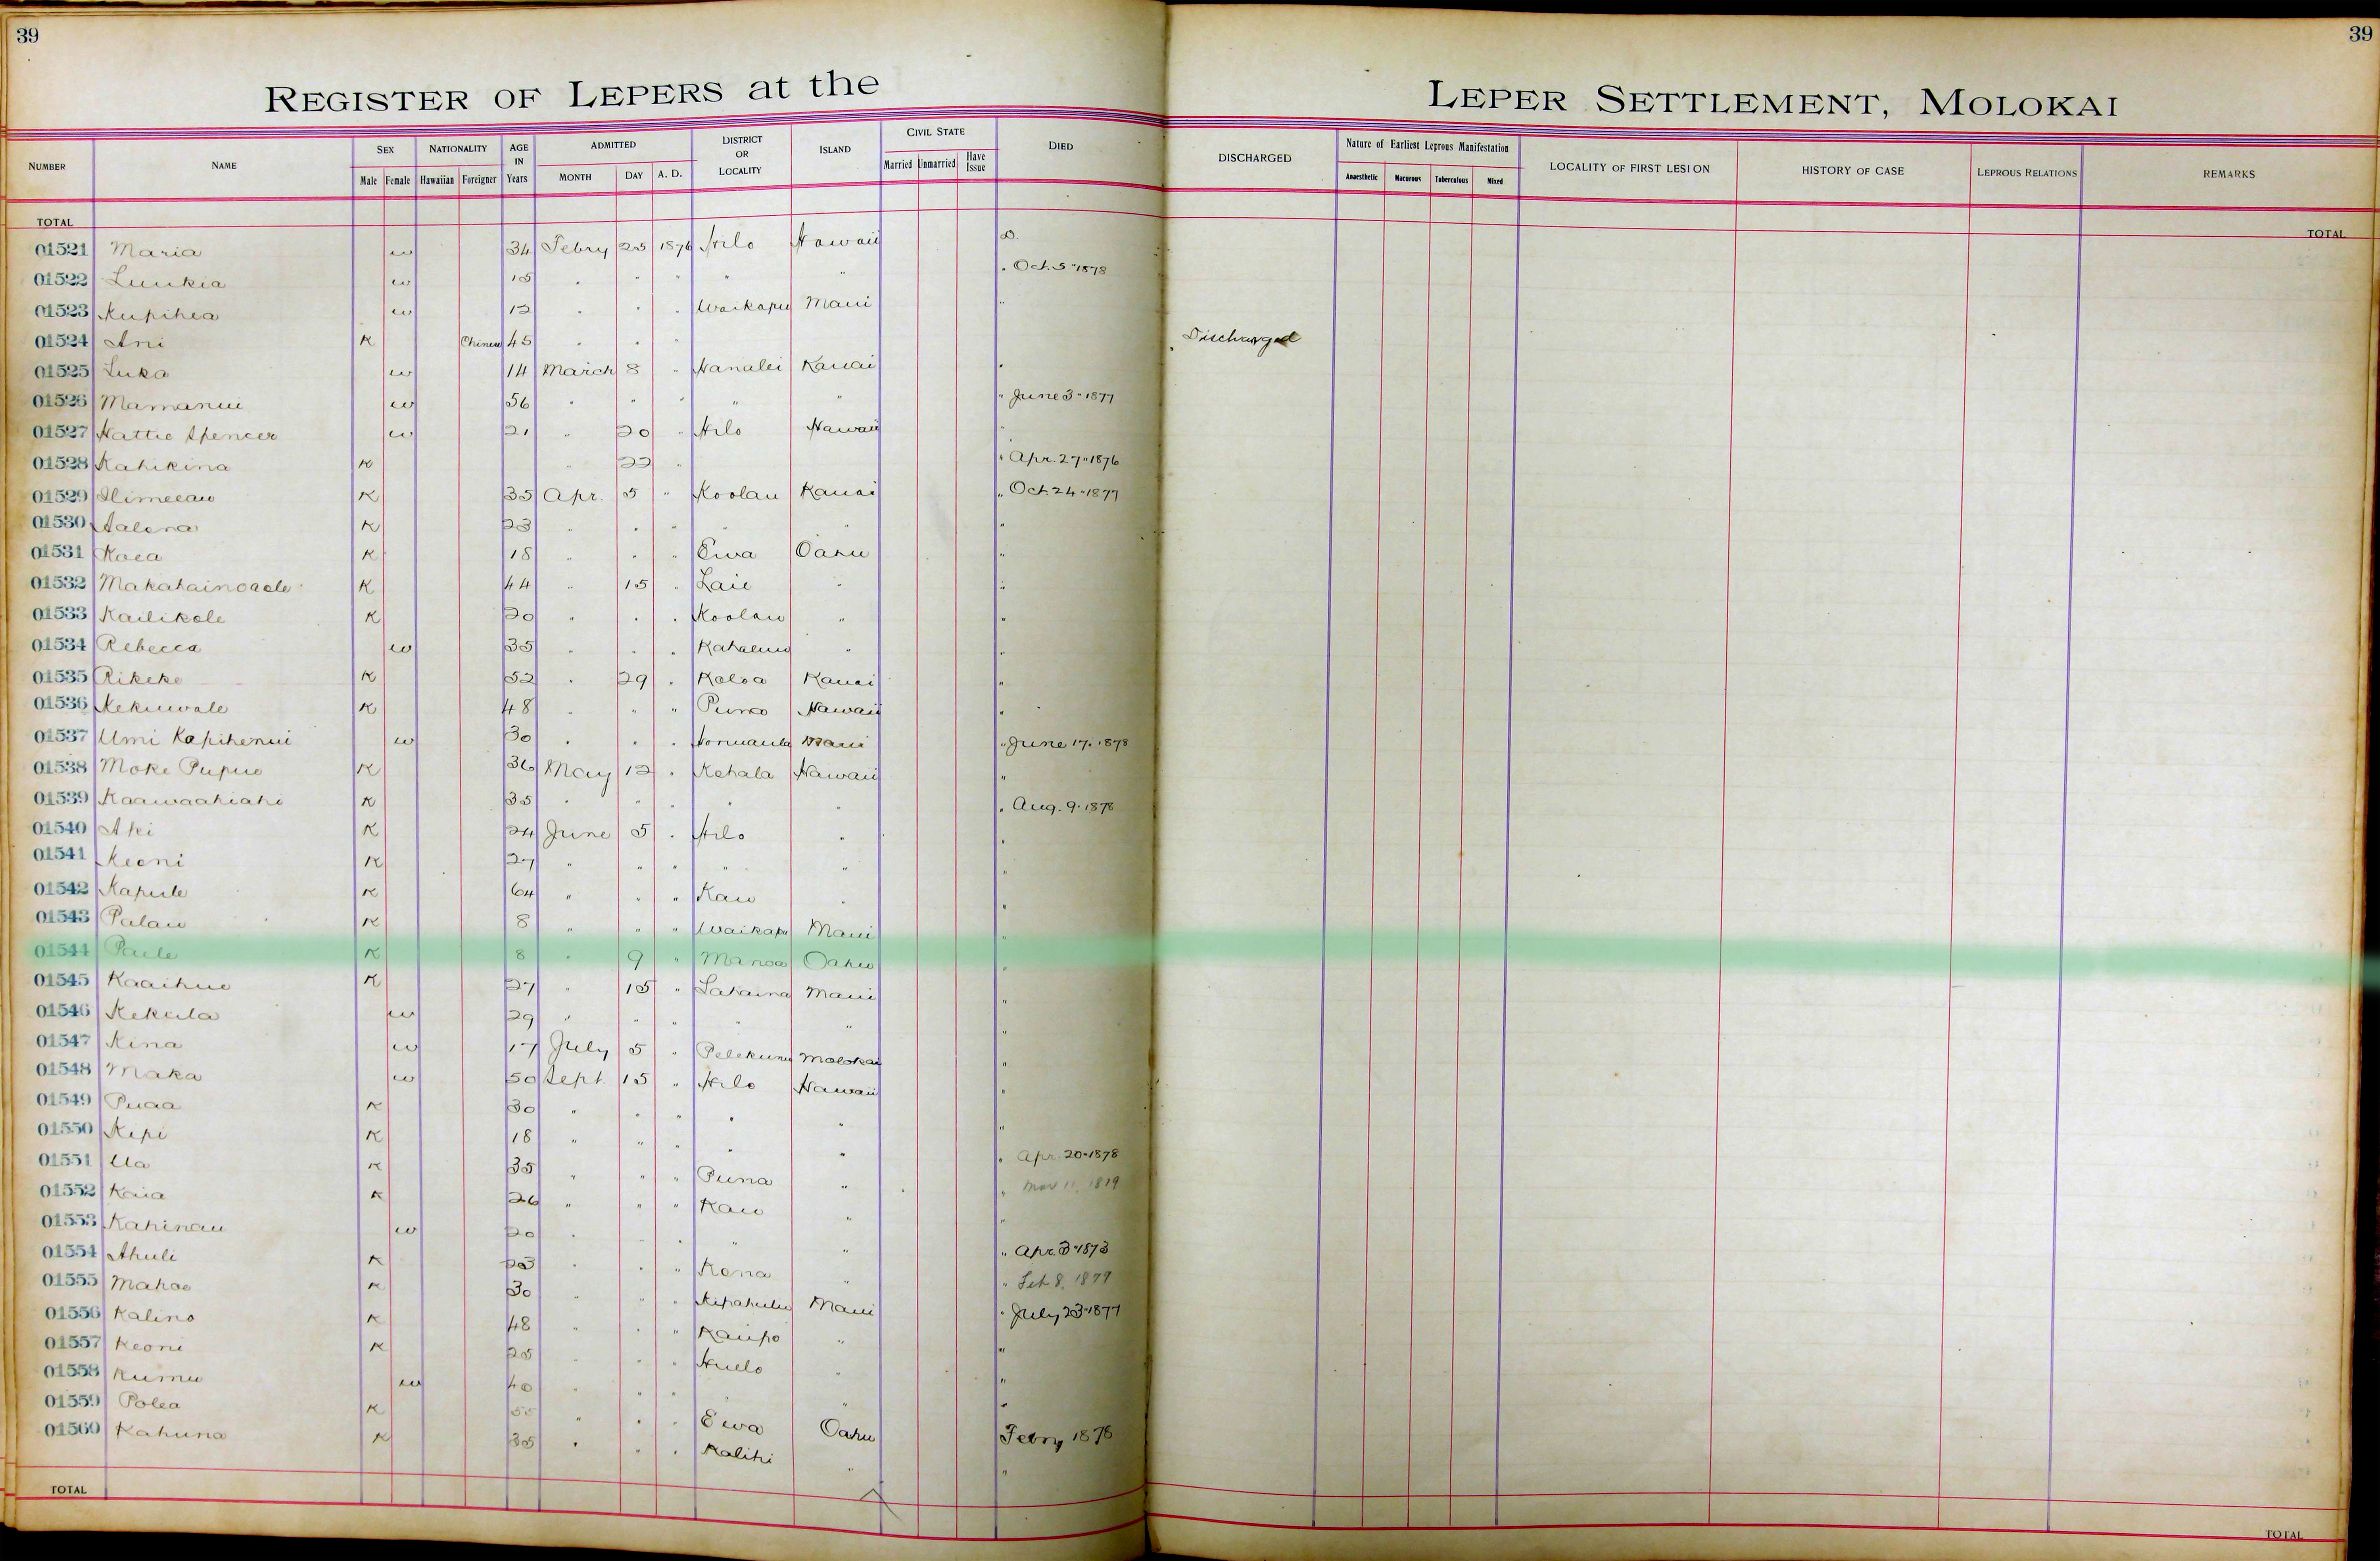 39 39
REGISTER OF LEPERS at the LEPER SETTLEMENT, MOLOKAI
NUMBER NAME SEX Male Female NATIONALITY Hawaiian Foreigner AGE IN Years ADMITTED MONTH DAY A. D. DISTRICT OR LOCALITY ISLAND CIVIL STATE Married Unmarried Have Issue DIED DISCHARGED Nature of Earliest Leprous Manifestation Anaesthetic Macurous Tuberculous Mixed LOCALITY OF FIRST LESION HISTORY OF CASE LEPROUS RELATIONS REMARKS
TOTAL TOTAL
01521 Maria w 34 Febry 25 1876 Hilo Hawaii D.
01522 Luukia w 15 " " " " " " Oct. 5 - 1878
01523 Kupihea w 12 " " " Waikapu Maui "
01524 Ani K Chinese 45 " " " Discharged
01525 Luka w 14 March 8 " Hanalei Kauai "
01526 Mamanui w 56 " " " " " " June 3 - 1877
01527 Hattie Spencer w 21 " 20 " Hilo Hawaii "
01528 Kahikina K " 22 " " Apr. 27 - 1876
01529 K 35 Apr. 5 " Koolau Kauai " Oct. 24 - 1877
01530 Aalona K 23 " " " " " "
01531 Koea K 18 " " " Ewa Oahu "
01532 Makahainoaole K 44 " 15 " Laie " "
01533 Kailikole K 20 " " " Koolau " "
01534 Rebecca w 35 " " " Kahaluu " "
01535 Rikeke K 52 " 29 " Koloa Kauai "
01536 Kekuwale K 48 " " " Puna Hawaii "
01537 Umi Kapihenui w 30 " " " Honuaula Maui " June 17. 1878
01538 Moke Pupue K 36 May 12 " Kohala Hawaii "
01539 Kaawaahiahi K 35 " " " " " " Aug. 9. 1878
01540 Aki K 24 June 5 " Hilo " "
01541 Keoni K 27 " " " " " "
01542 Kapule K 64 " " " Kau " "
01543 Palau K 8 " " " Waikapu Maui "
01544 Paele K 8 " 9 " Manoa Oahu "
01545 Kaaihue K 27 " 15 " Lahaina Maui "
01546 Kekula w 29 " " " " " "
01547 Kina w 17 July 5 " Pelekunu Molokai "
01548 Maka w 50 Sept. 15 " Hilo Hawaii "
01549 Puaa K 30 " " " " " "
01550 Kepi K 18 " " " " " " Apr. 20 - 1878
01551 Ua K 35 " " " Puna " " Mar 11, 1879
01552 Kaia K 26 " " " Kau " "
01553 Kahinau w 20 " " " " " " Apr. 3 - 1873
01554 Ahuli K 23 " " " Kona " " Feb 8, 1879
01555 Mahoe K 30 " " " Kipahulu Maui " July 23 - 1877
01556 Kalino K 48 " " " Kaupo " "
01557 Keoni K 25 " " " Huelo " "
01558 Kumu w 40 " " " " "
01559 Polea K 55 " " " Ewa Oahu Febry 1878
01560 Kahuna K 35 " " " Kalihi " "
TOTAL TOTAL